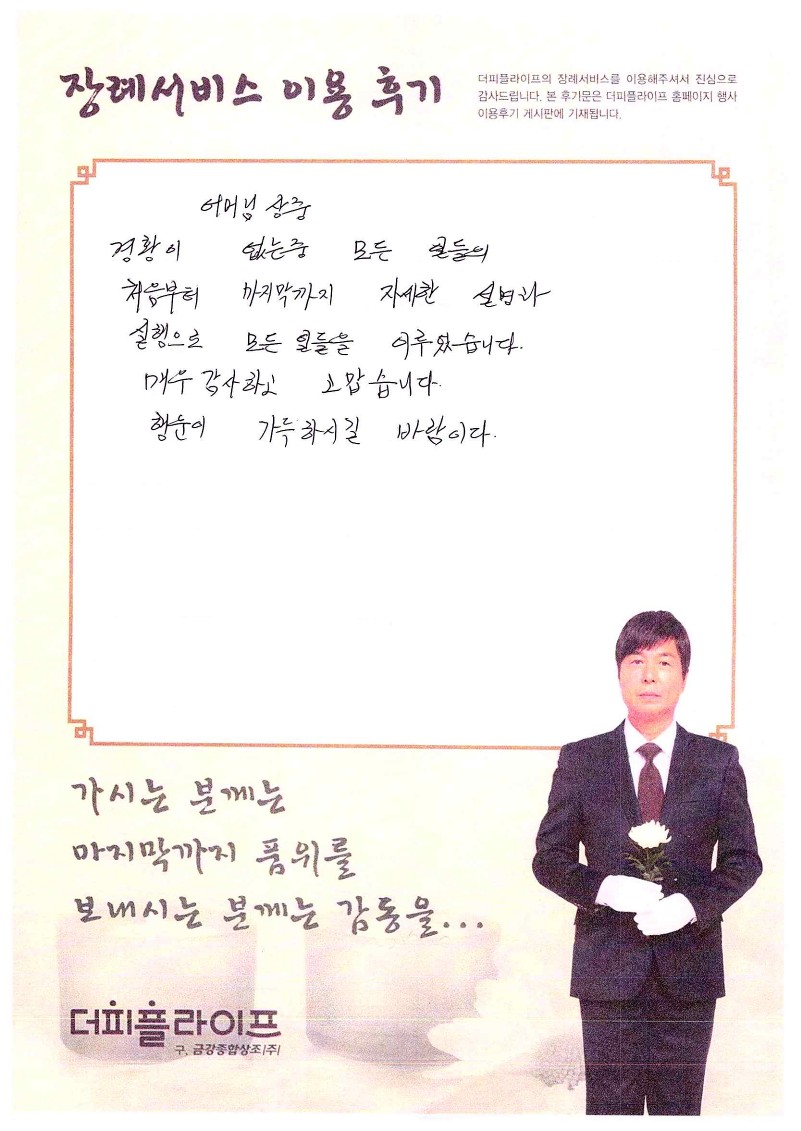 장례서비스 이용 후기
더피플라이프의 장례서비스를 이용해주셔서 진심으로
감사드립니다. 본 후기문은 더피플라이프 홈페이지 행사
이용후기 게시판에 기재됩니다.
어머님 상중
경황이 없는중 모든 일들의
처음부터 마지막까지 자세한 설명과
실행으로 모든 일들을 이루었습니다.
매우 감사하고 고맙습니다.
행운이 가득하시길 바람이다.
가시는 분께는
마지막까지 품위를
보내시는 분께는 감동을...
더피플라이프
구. 금강종합상조(주)